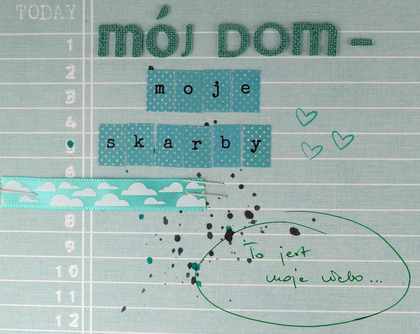 TODAY
MÓJ DOM-
1
2
moje
3
4
skarby
6
8
9
To jest
10
moje niebo...
11
12